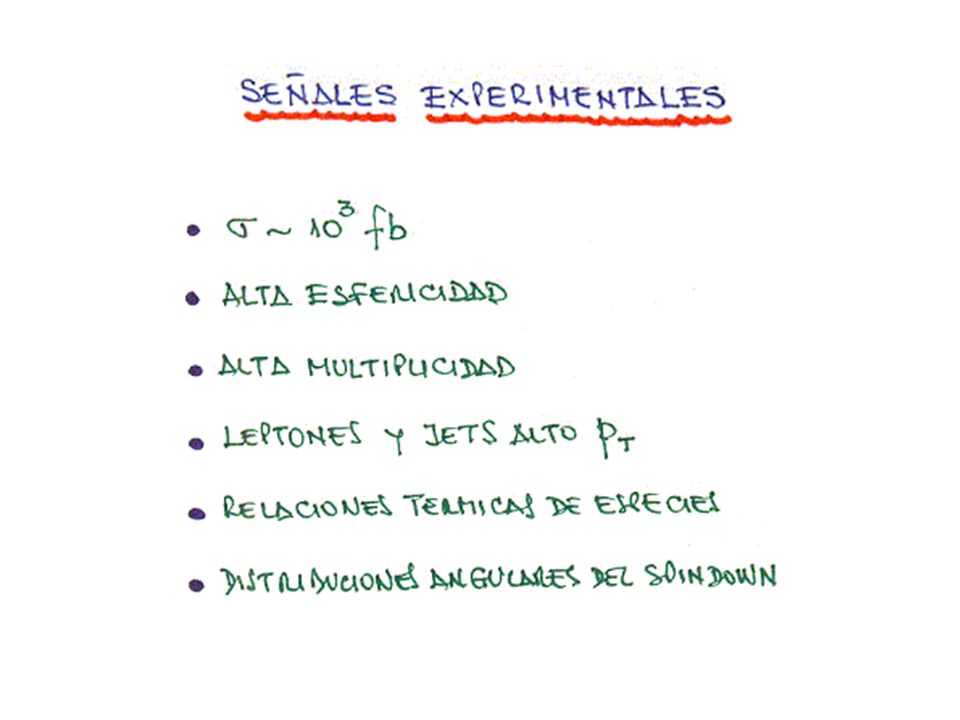 SEÑALES EXPERIMENTALES
• σ ~ 10³ fb
• ALTA ESFERICIDAD
• ALTA MULTIPLICIDAD
• LEPTONES Y JETS ALTO p_T
• RELACIONES TERMICAS DE ESPECIES
• DISTRIBUCIONES ANGULARES DEL SPINDOWN